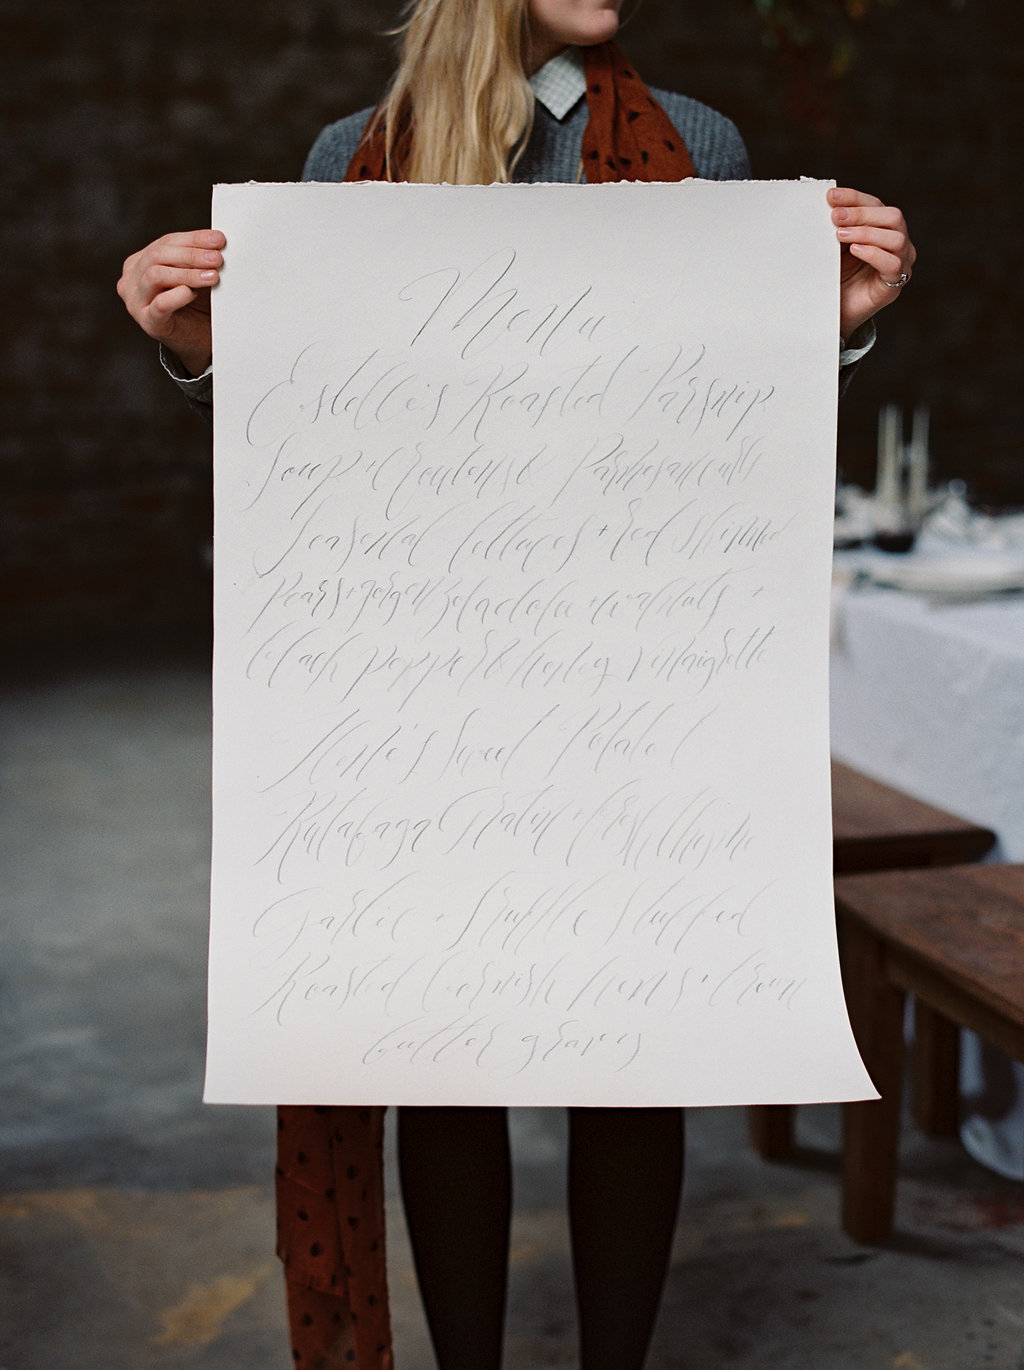 Menu
Estelle's Roasted Parsnip
Soup + Croutons & Parmesan curls
Seasonal lettuces + red skinned
Pears + gorgonzola dolce + walnuts +
black pepper & honey vinaigrette
Sweet Potato
Rutabaga Gratin + fresh thyme
Garlic + truffle stuffed
Roasted Cornish hens + brown
butter gravy